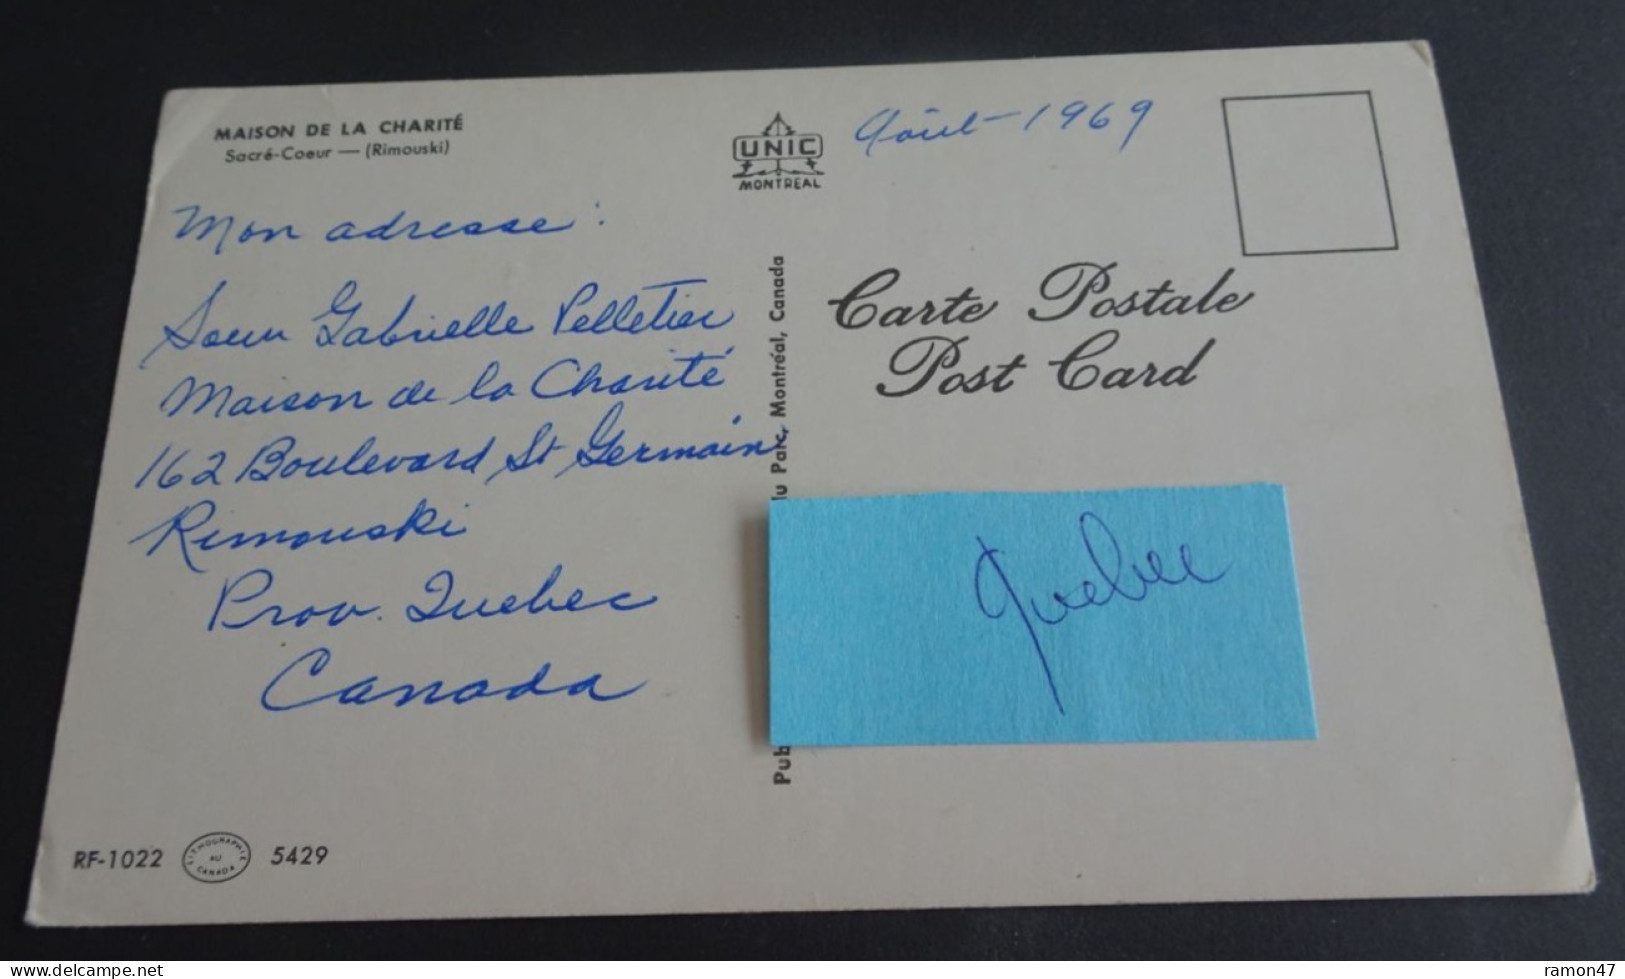 MAISON DE LA CHARITÉ
Sacré-Coeur — (Rimouski)
UNIC
MONTREAL
Août - 1969
Mon adresse :
Soeur Gabrielle Pelletier
Maison de la Charité
162 Boulevard St Germain
Rimouski
Prov. Quebec
Canada
Carte Postale
Post Card
Pub
du Parc, Montréal, Canada
Quebec
RF-1022
LITHOGRAPHIE
AU
CANADA
5429
www.delcampe.net
ramon47